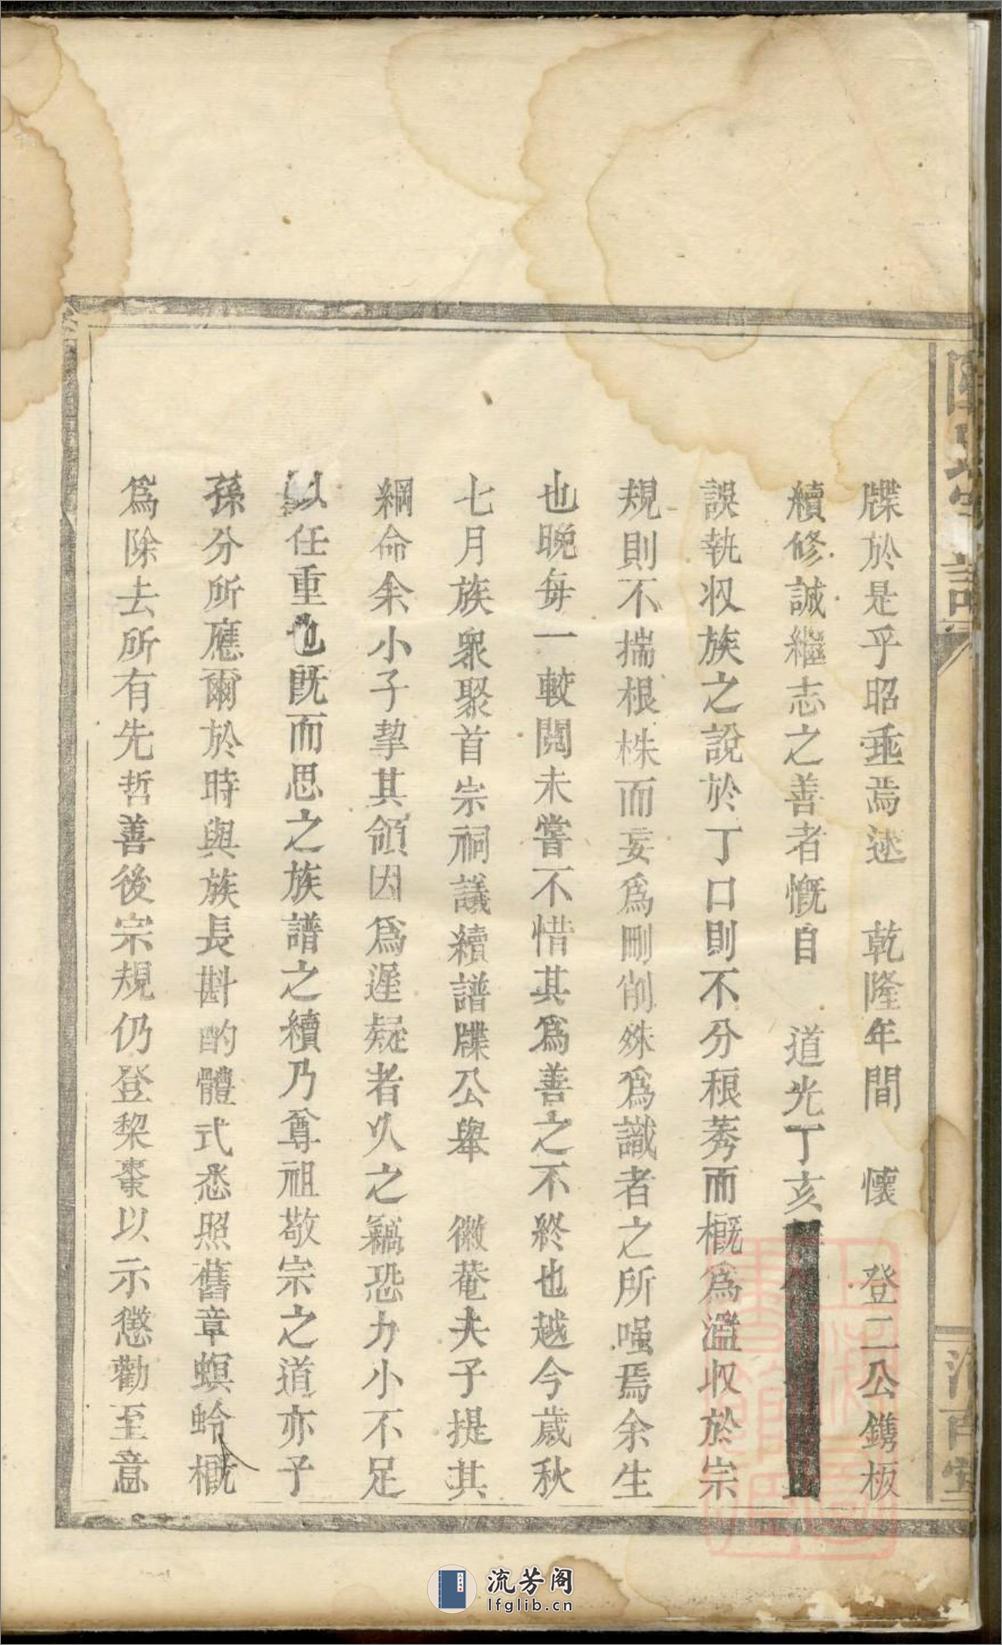 牒於是乎昭垂焉述　乾隆年間　懷　登二公鐫板
續修誠繼志之善者慨自　道光丁亥
誤執収族之說於丁口則不分稂莠而概為濫収於宗
規則不揣根株而妄為刪削殊為識者之所嗤焉余生
也晚每一較閱未嘗不惜其為善之不終也越今歲秋
七月族衆聚首宗祠議續譜牒公舉　徽菴夫子提其
綱命余小子挈其領因為遲疑者久之竊恐力小不足
以任重也既而思之族譜之續乃尊祖敬宗之道亦子
孫分所應爾於時與族長斟酌體式悉照舊章螟蛉概
為除去所有先哲善後宗規仍登棃棗以示懲勸至意
流芳阁
lfglib.cn